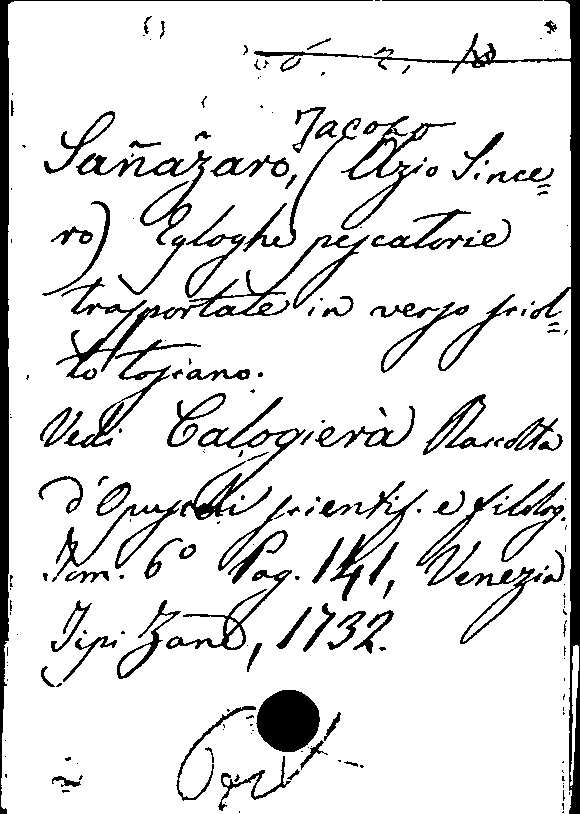 66. 2. 10
Jacopo
Sañazaro, (Azio Since=
ro) Egloghe pescatorie
trasportate in verso sciol=
to toscano.
Vedi Calogierà Raccolta
d'Opuscoli scientif. e filolog.
Tom. 6º Pag. 141, Venezia
Tipi Zane, 1732.